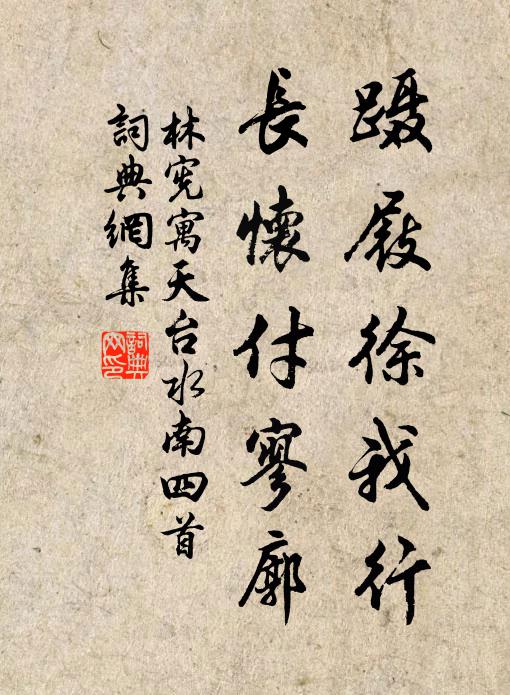 蹑屐徐我行
長懷付寥廓
林宪寓天台水南四首
詞典網集
詞典网印